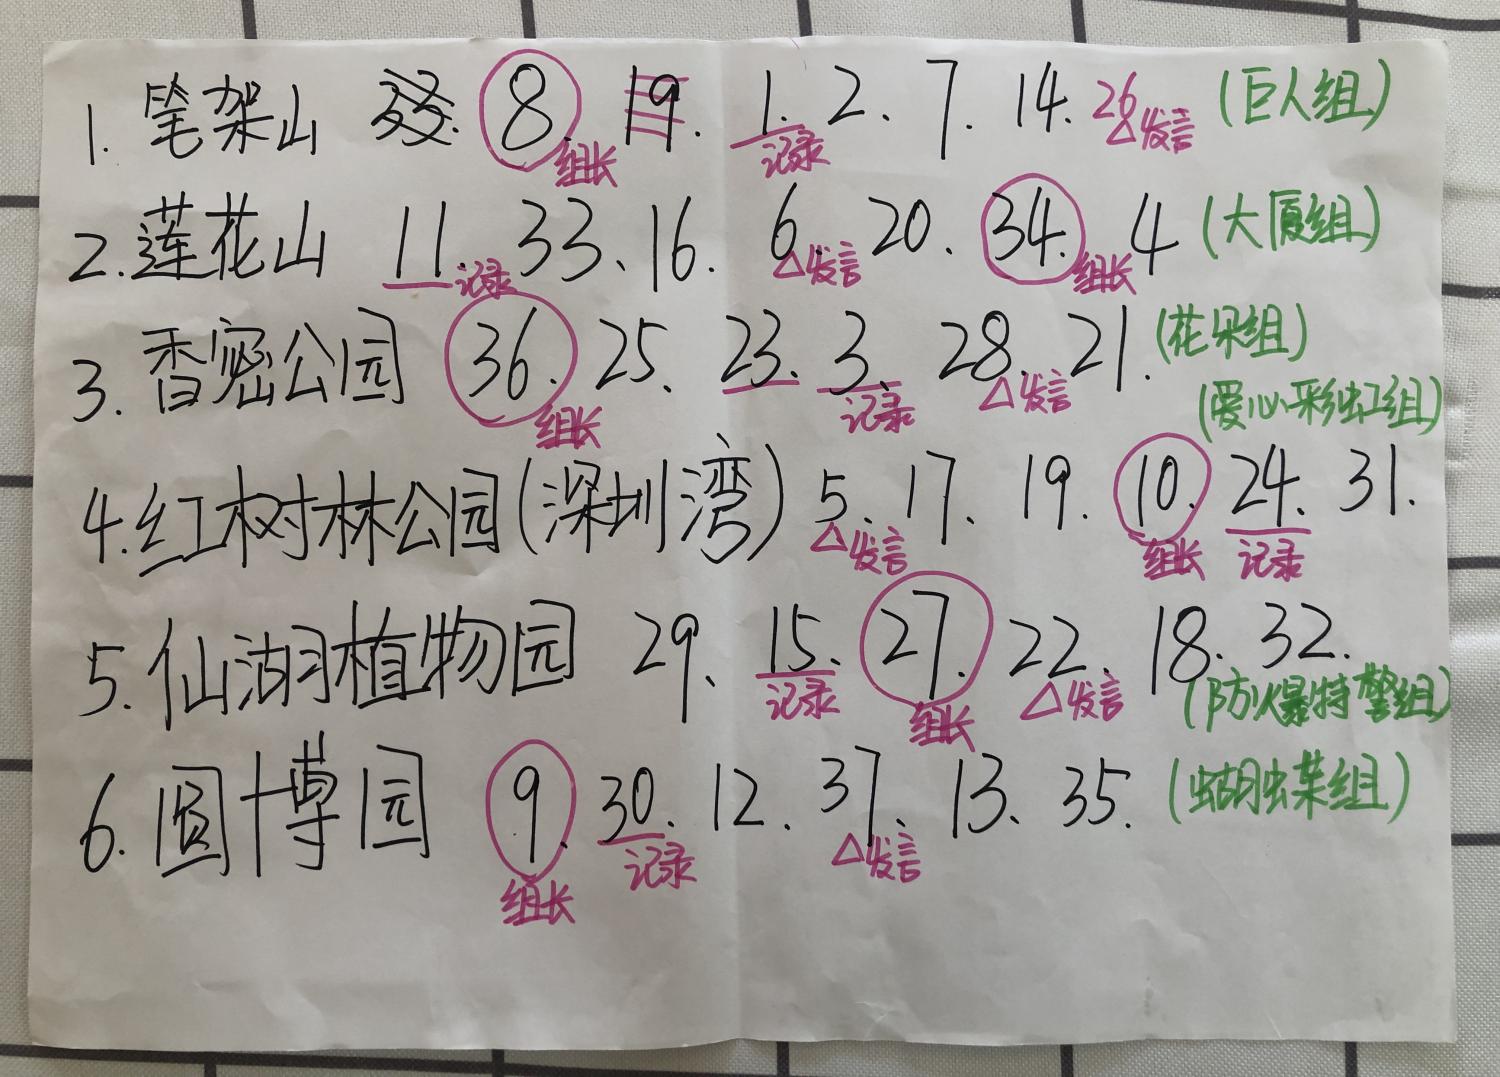 1. 笔架山 8. 19. 1. 2. 7. 14. 26 (巨人组)
组长 记录 △发言
2. 莲花山 11. 33、16. 6. 20. 34. 4 (大厦组)
记录 △发言 组长
3. 香密公园 36. 25、23. 3. 28. 21. (花朵组)
组长 记录 △发言 (爱心彩虹组)
4. 红树林公园(深圳湾) 5、17、19、10、24. 31.
△发言 组长 记录
5. 仙湖植物园 29、15、27. 22、18. 32.
记录 组长 △发言 (防爆特警组)
6. 圆博园 9. 30. 12. 37. 13、35. (蝴蝶组)
组长 记录 △发言